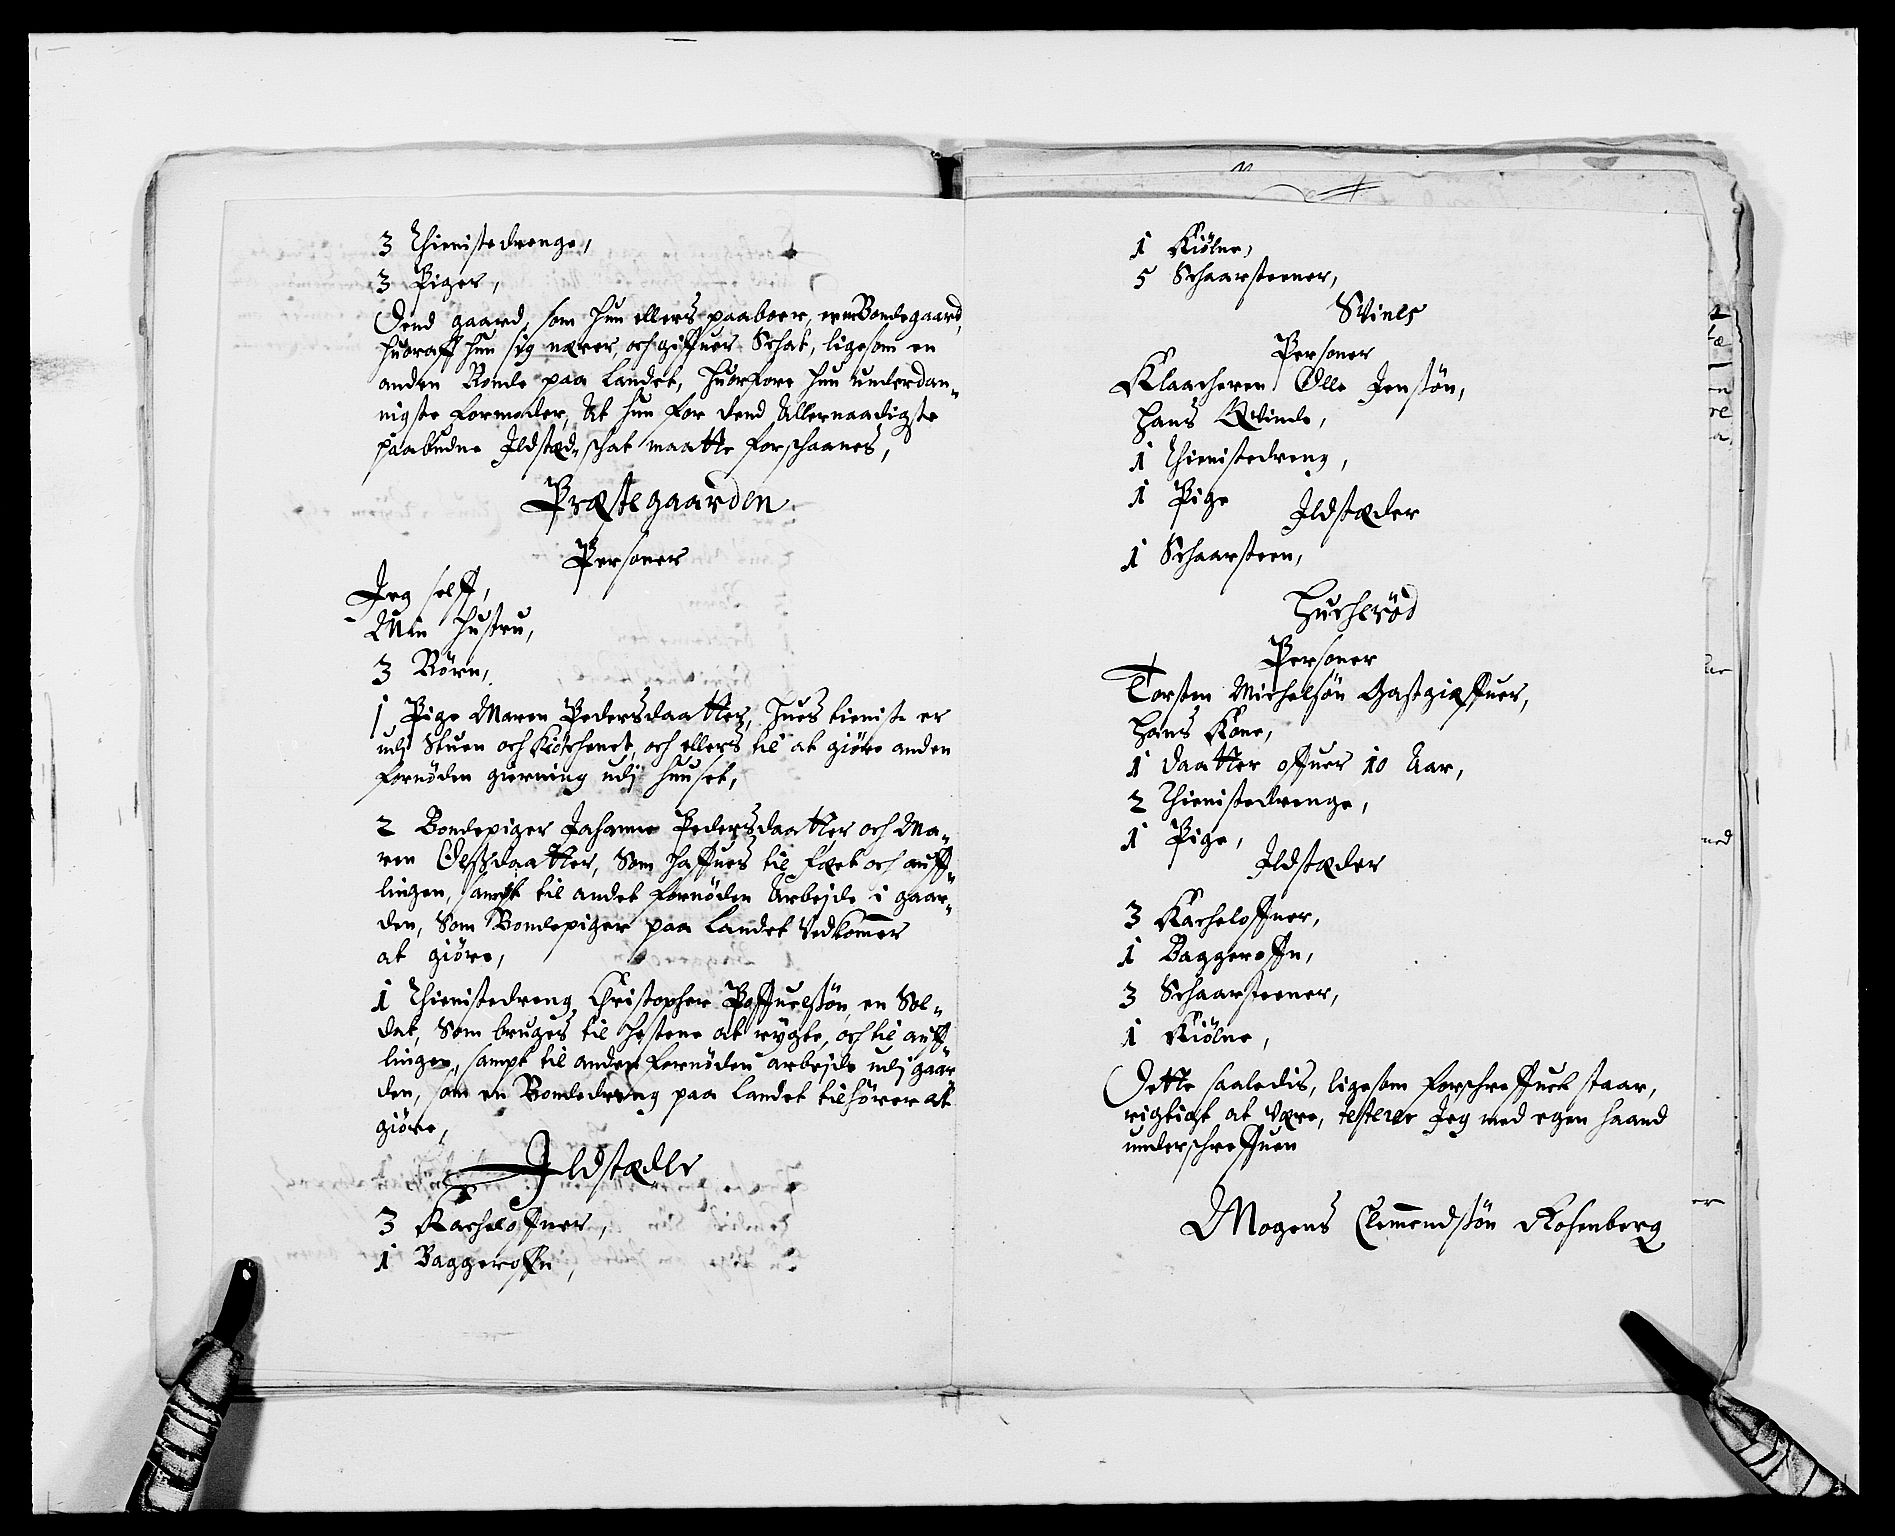 3 Thienistedrenge,
3 Piger,
Dend gaard, som hun ellers paaboer, er en Bondegaard,
huoraff hun sig nærer, och giffuer Schat, ligesom en
anden Bonde paa Landet, huorfore hun underdan-
nigste formoder, At hun for dend Allernaadigste
paabudne Ildstæd-schat maatte forschaanes,
Præstegaarden
Personer
Jeg self,
Min hustru,
3 Börn,
1 Pige Maren Pedersdaatter, hues tieniste er
udj Stuen och Kiöchenet, och ellers til at giöre anden
fornöden gierning udj huuset,
2 Bondepiger Johanne Pedersdaatter och Ma-
ren Olsdaatter, Som haffues til Fæet och auff-
lingen, sampt til andet fornöden Arbejde i gaar-
den, Som Bondepiger paa Landet Vedkommer
at giöre,
1 Thienistedreng Christopher Poffuelssön, en Sol-
dat, Som bruges til hestene at rygte, och til auff-
lingen, sampt til andet fornöden arbejde udj gaar
den, som en Bondedreng paa Landet tilhörer at
giöre,
Ildstæder
3 Kacheloffner,
1 Baggeroffn,
1 Kiölne,
5 Schaarsteener,
Svines
Personer
Klaacheren Olle Jenssön,
Hans Qvinde,
1 Thienistedreng,
1 Pige
Ildstæder
1 Schaarsteen,
Hurheröd
Personer
Torsten Michelsön Gastgiæffuer,
Hans Kone,
1 daatter offuer 10 Aar,
2 Thienistedrenge,
1 Pige,
Ildstæder
3 Kacheloffner,
1 Baggeroffn,
3 Schaarsteener,
1 Kiölne,
Dette saaledis, ligesom forschreffuet staar,
rigtigt at være, testerer Jeg med egen haand
underschreffuen
Mogens Clemmendssön Rosenberg